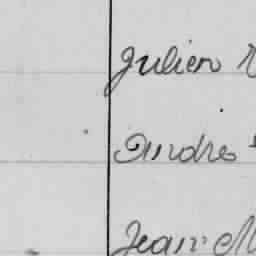 Julien
Andrés
Jean M